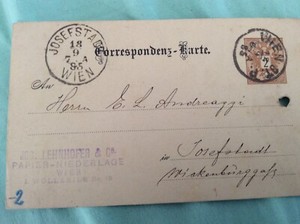 JOSEFSTADT
18
9
7 A
85
WIEN
Correspondenz-Karte.
WIEN
2
An
Herrn E. L. Andreaggi
in
Josefstadt
Wickenburggasse
& Co
PAPIER-NIEDERLAGE
WIEN
-2